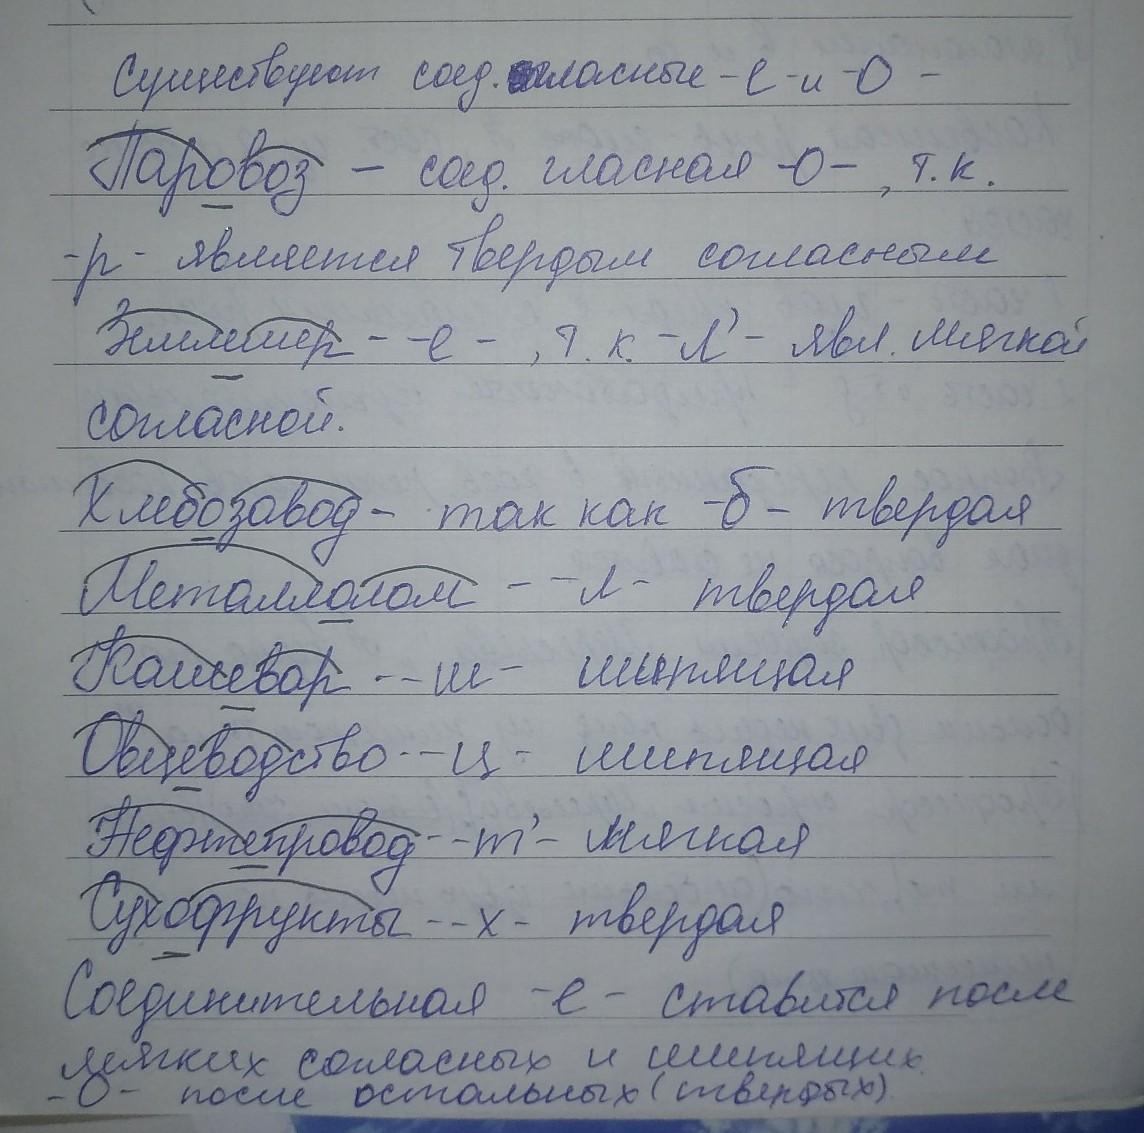 Существуют соед. гласные -е- и -О-
Паровоз - соед. гласная -О-, т.к.
-р- является твердым согласным
Землемер - -е-, т.к. -л'- явл. мягкой
согласной.
Хлебозавод - так как -б- твердая
Металлолом - -л- твердая
Кашевар - -ш- шипящая
Овцеводство - -ц- шипящая
Нефтепровод - -т'- мягкая
Сухофрукты - -х- твердая
Соединительная -е- ставится после
мягких согласных и шипящих
-О- после остальных (твердых).